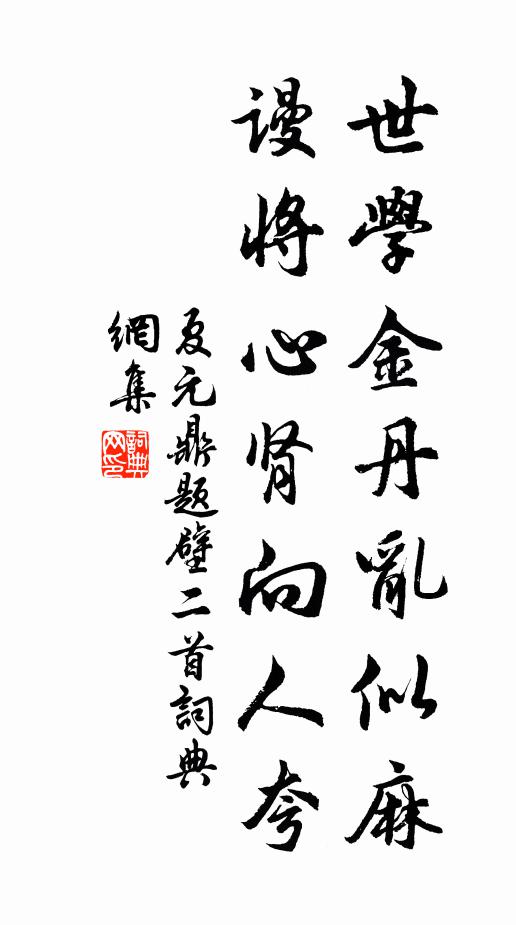 世學金丹亂似麻
謾將心腎向人夸
夏元鼎題壁二首詞典
網集
詞典網印